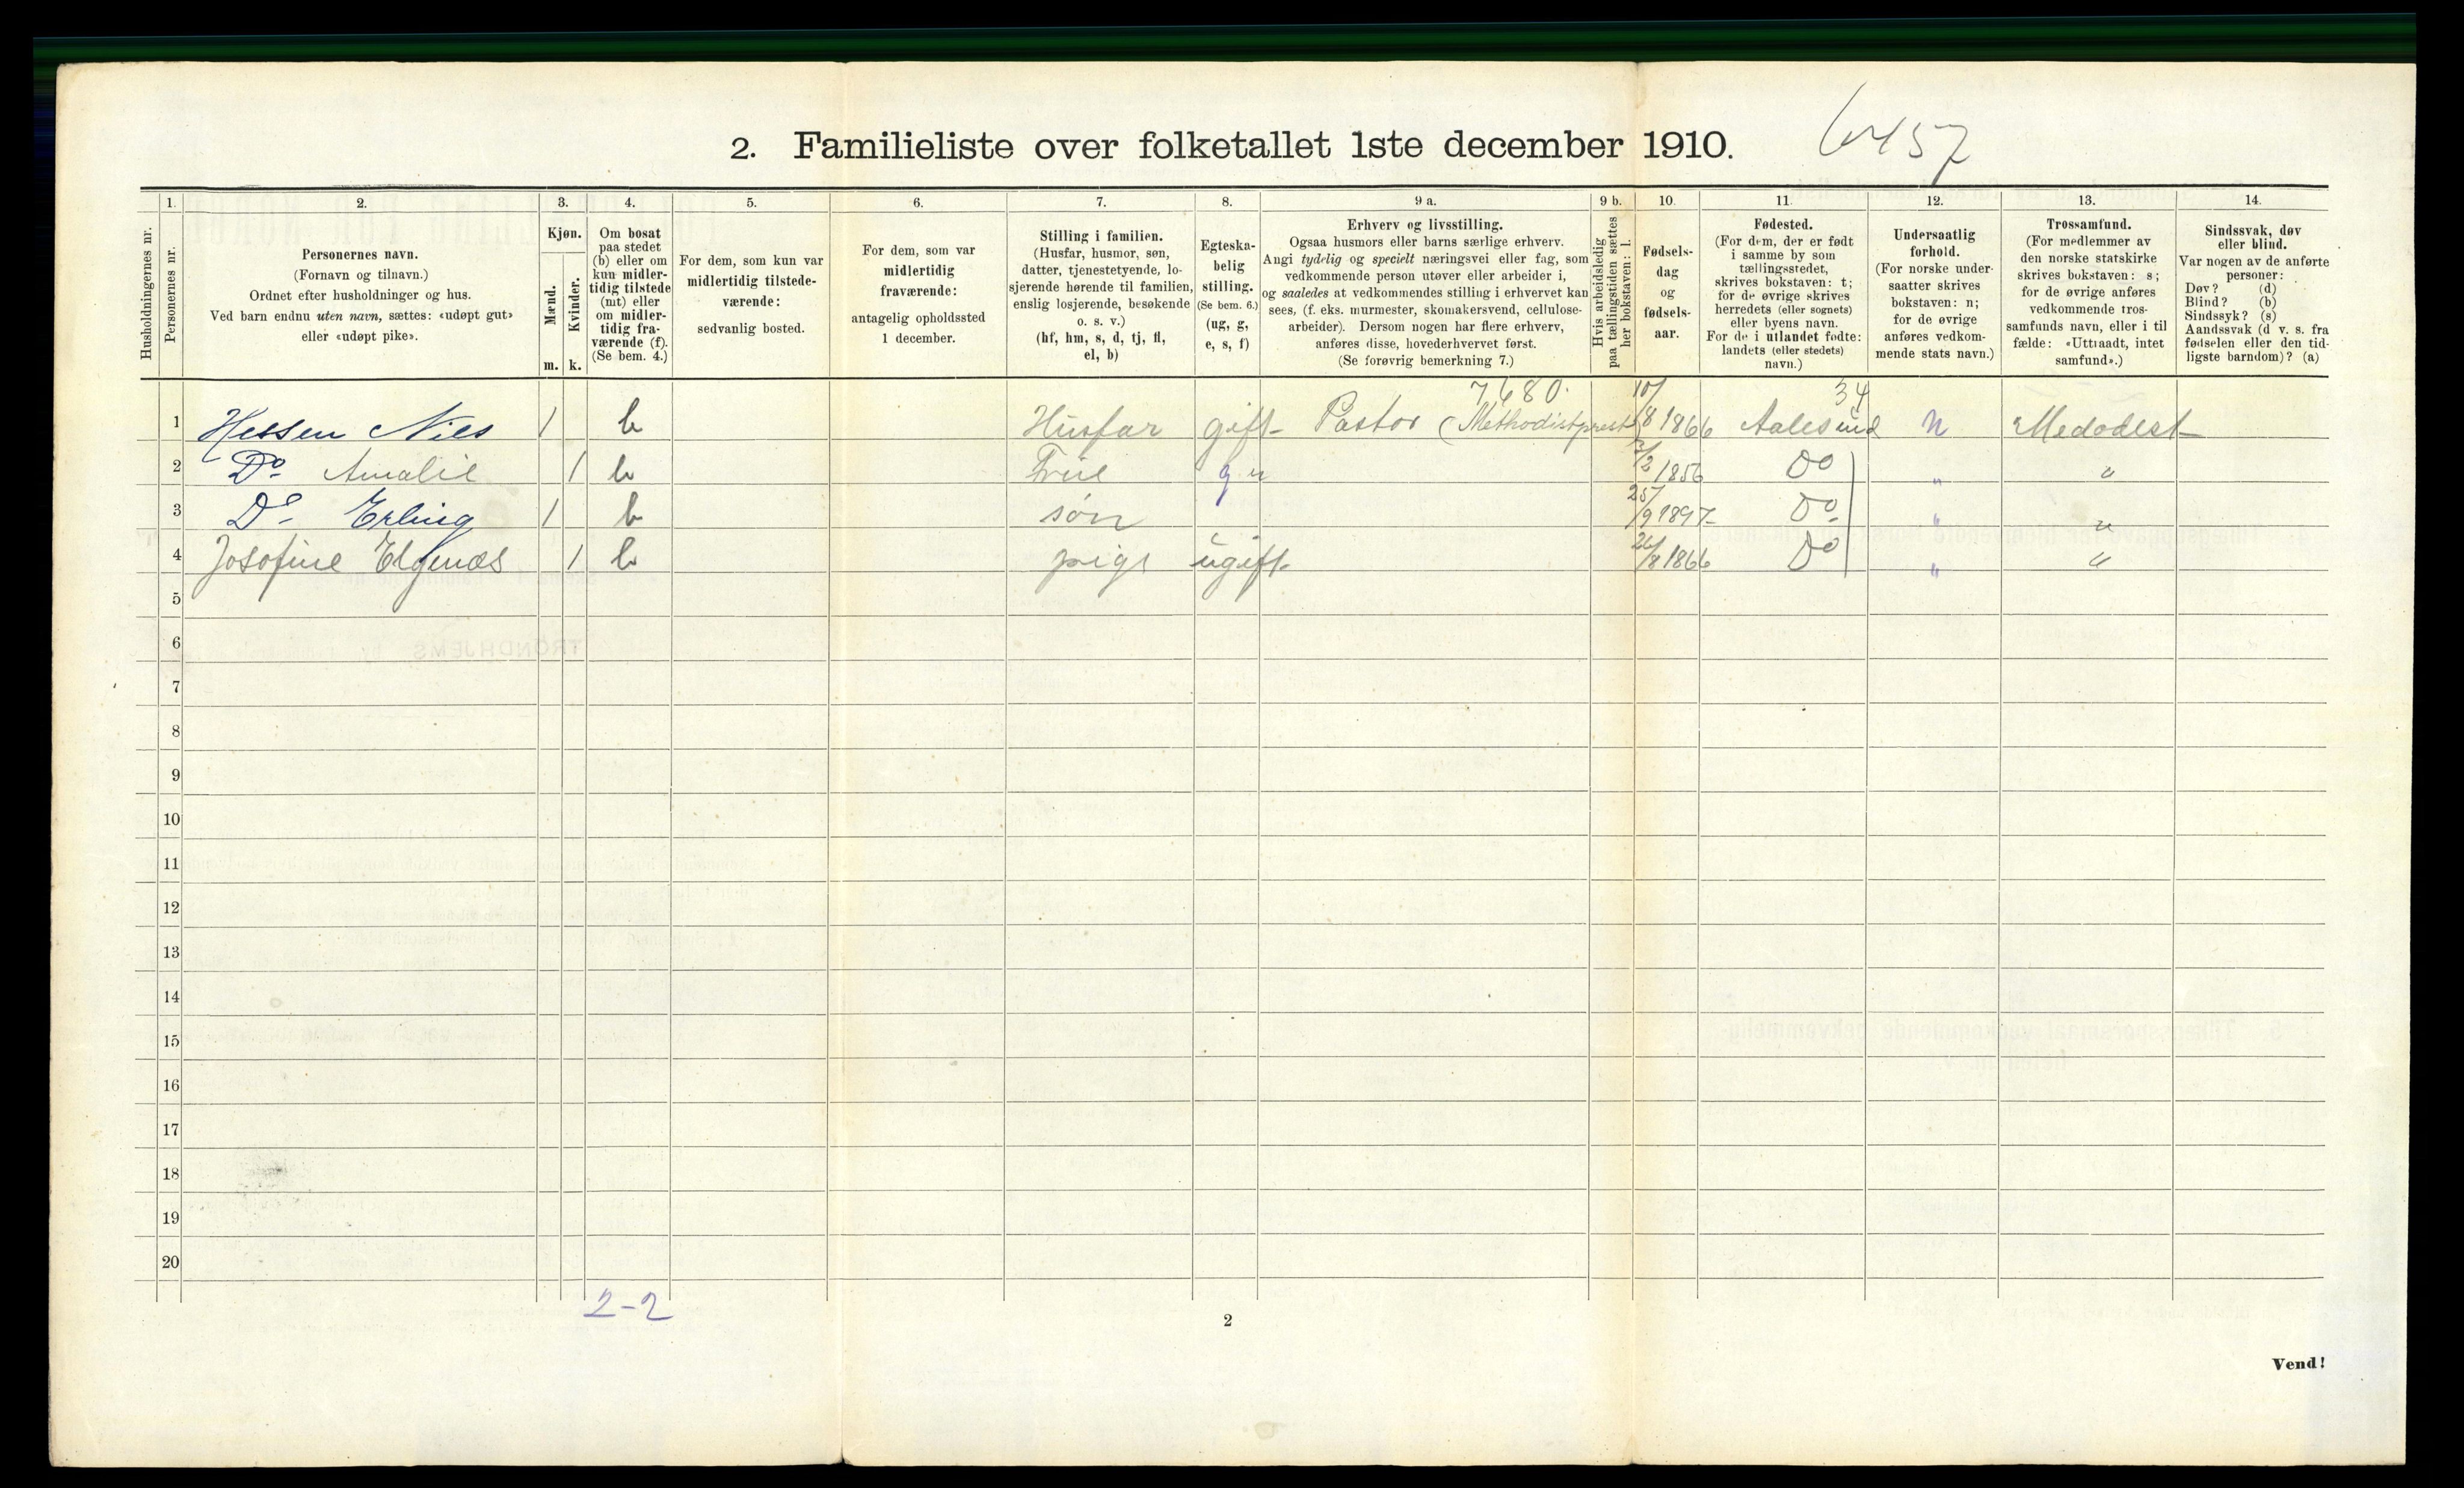 2. Familieliste over folketallet 1ste december 1910. 6457
1. 2. 3. 4. 5. 6. 7. 8. 9 a. 9 b. 10. 11. 12. 13. 14.
Husholdningernes nr.
Personernes nr.
Personernes navn.
(Fornavn og tilnavn.)
Ordnet efter husholdninger og hus.
Ved barn endnu uten navn, sættes: «udøpt gut»
eller «udøpt pike».
Kjøn.
Mænd.
Kvinder.
m. k.
Om bosat
paa stedet
(b) eller om
kun midler-
tidig tilstede
(mt) eller
om midler-
tidig fra-
værende (f).
(Se bem. 4.)
For dem, som kun var
midlertidig tilstede-
værende:
sedvanlig bosted.
For dem, som var
midlertidig
fraværende:
antagelig opholdssted
1 december.
Stilling i familien.
(Husfar, husmor, søn,
datter, tjenestetyende, lo-
sjerende hørende til familien,
enslig losjerende, besøkende
o. s. v.)
(hf, hm, s, d, tj, fl,
el, b)
Egteska-
belig
stilling.
(Se bem. 6.)
(ug, g,
e, s, f)
Erhverv og livsstilling.
Ogsaa husmors eller barns særlige erhverv.
Angi tydelig og specielt næringsvei eller fag, som
vedkommende person utøver eller arbeider i,
og saaledes at vedkommendes stilling i erhvervet kan
sees, (f. eks. murmester, skomakersvend, cellulose-
arbeider). Dersom nogen har flere erhverv,
anføres disse, hovederhvervet først.
(Se forøvrig bemerkning 7.)
Hvis arbeidsledig
paa tællingstiden sættes
her bokstaven: l.
Fødsels-
dag
og
fødsels-
aar.
Fødested.
(For dem, der er født
i samme by som
tællingsstedet,
skrives bokstaven: t;
for de øvrige skrives
herredets (eller sognets)
eller byens navn.
For de i utlandet fødte:
landets (eller stedets)
navn.)
Undersaatlig
forhold.
(For norske under-
saatter skrives
bokstaven: n;
for de øvrige
anføres vedkom-
mende stats navn.)
Trossamfund.
(For medlemmer av
den norske statskirke
skrives bokstaven: s;
for de øvrige anføres
vedkommende tros-
samfunds navn, eller i til
fælde: «Uttraadt, intet
samfund».)
Sindssvak, døv
eller blind.
Var nogen av de anførte
personer:
Døv? (d)
Blind? (b)
Sindssyk? (s)
Aandssvak (d v. s. fra
fødselen eller den tid-
ligste barndom)? (a)
7680. 34
1 Hessen Nils 1 b Husfar gift Pastor (Methodistprest) 10/8 1866 Aalesund n Medodest
2 Do Amalie 1 b Frue g " /2 1856 Do " "
3 Do Erling 1 b søn 25/9 1897 Do " "
4 Josofine Elgenæs 1 b pige ugift 26/8 1866 Do " "
5
6
7
8
9
10
11
12
13
14
15
16
17
18
19
20
2-2
2
Vend!